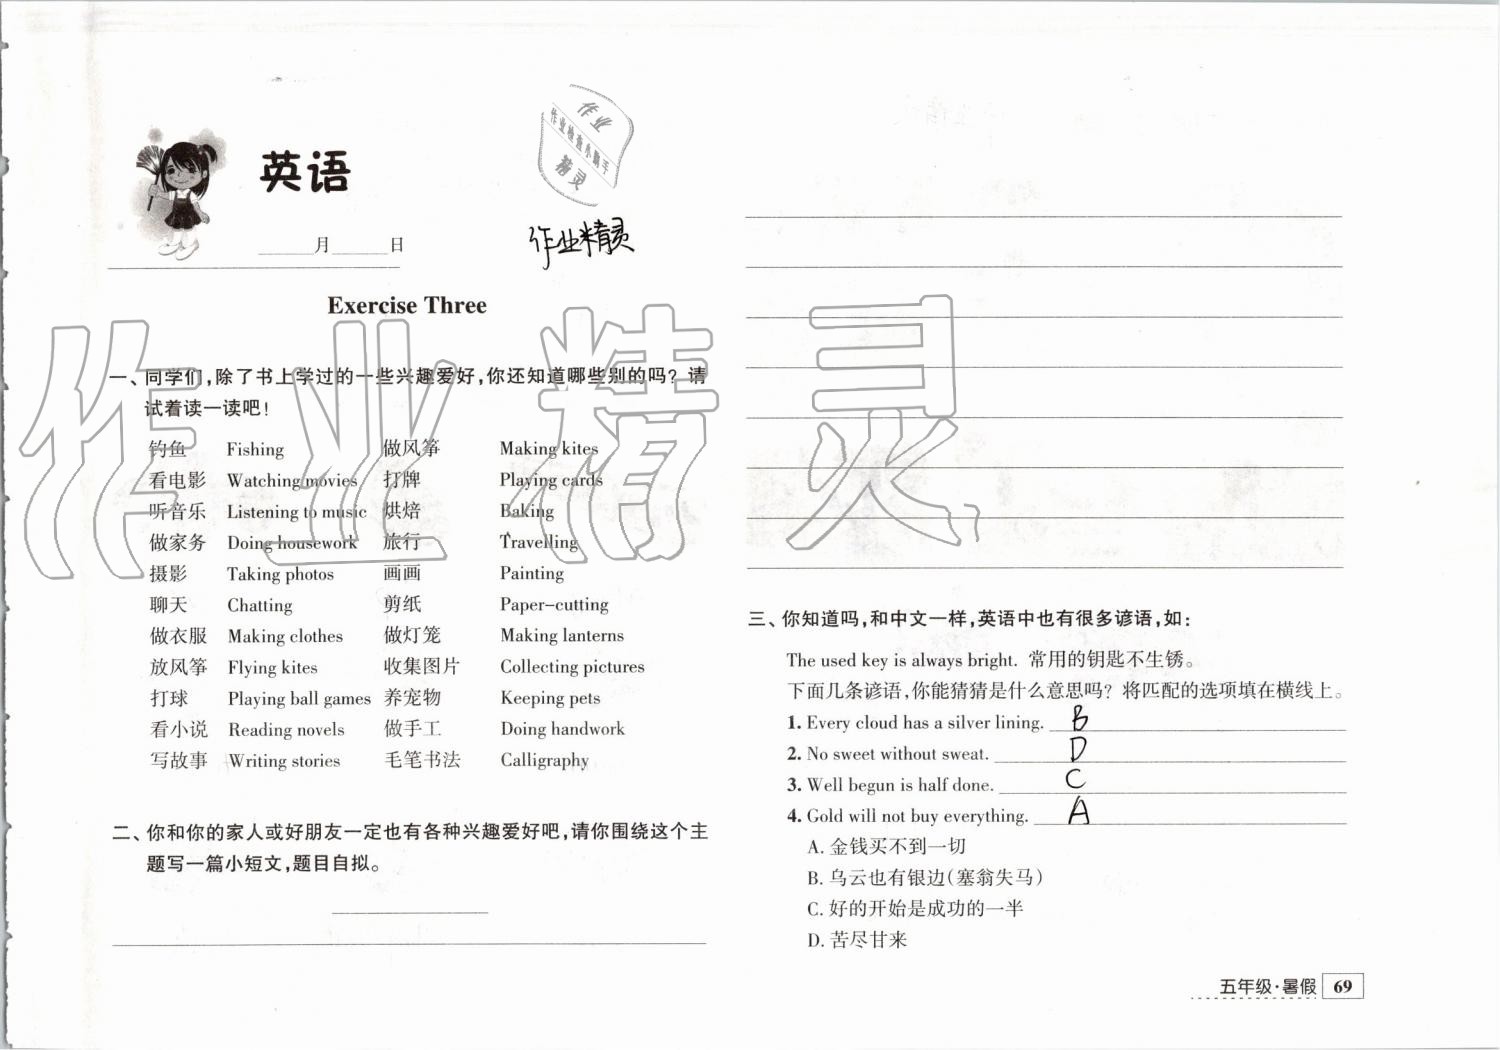 英语
作业
作业检查小助手
精灵
作业精灵
____月____日
Exercise Three
一、同学们,除了书上学过的一些兴趣爱好,你还知道哪些别的吗? 请
试着读一读吧!
钓鱼 Fishing 做风筝 Making kites
看电影 Watching movies 打牌 Playing cards
听音乐 Listening to music 烘焙 Baking
做家务 Doing housework 旅行 Travelling
摄影 Taking photos 画画 Painting
聊天 Chatting 剪纸 Paper-cutting
做衣服 Making clothes 做灯笼 Making lanterns
放风筝 Flying kites 收集图片 Collecting pictures
打球 Playing ball games 养宠物 Keeping pets
看小说 Reading novels 做手工 Doing handwork
写故事 Writing stories 毛笔书法 Calligraphy
二、你和你的家人或好朋友一定也有各种兴趣爱好吧,请你围绕这个主
题写一篇小短文,题目自拟。
三、你知道吗,和中文一样,英语中也有很多谚语,如:
The used key is always bright. 常用的钥匙不生锈。
下面几条谚语,你能猜猜是什么意思吗? 将匹配的选项填在横线上。
1. Every cloud has a silver lining. B
2. No sweet without sweat. D
3. Well begun is half done. C
4. Gold will not buy everything. A
A. 金钱买不到一切
B. 乌云也有银边(塞翁失马)
C. 好的开始是成功的一半
D. 苦尽甘来
五年级·暑假 69
作业精灵